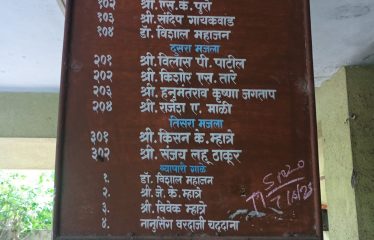 १०२ श्री.एस.के. पुरो
१०३ श्री.संदिप गायकवाड
१०४ डॉ. विशाल महाजन
दुसरा मजला
२०१ श्री.विलास पी. पाटील
२०२ श्री.किशोर एल. तारे
२०३ श्री.हनुमंतराव कृष्णा जगताप
२०४ श्री.राजेश ए. माळी
तिसरा मजला
३०१ श्री.किसन के.म्हात्रे
३०२ श्री.संजय लहू ठाकूर
व्यापारी गाळे
१. डॉ.विशाल महाजन
२. श्री.जे.के.म्हात्रे
३. श्री.विवेक म्हात्रे
४. नानुसिंग वरदाजी